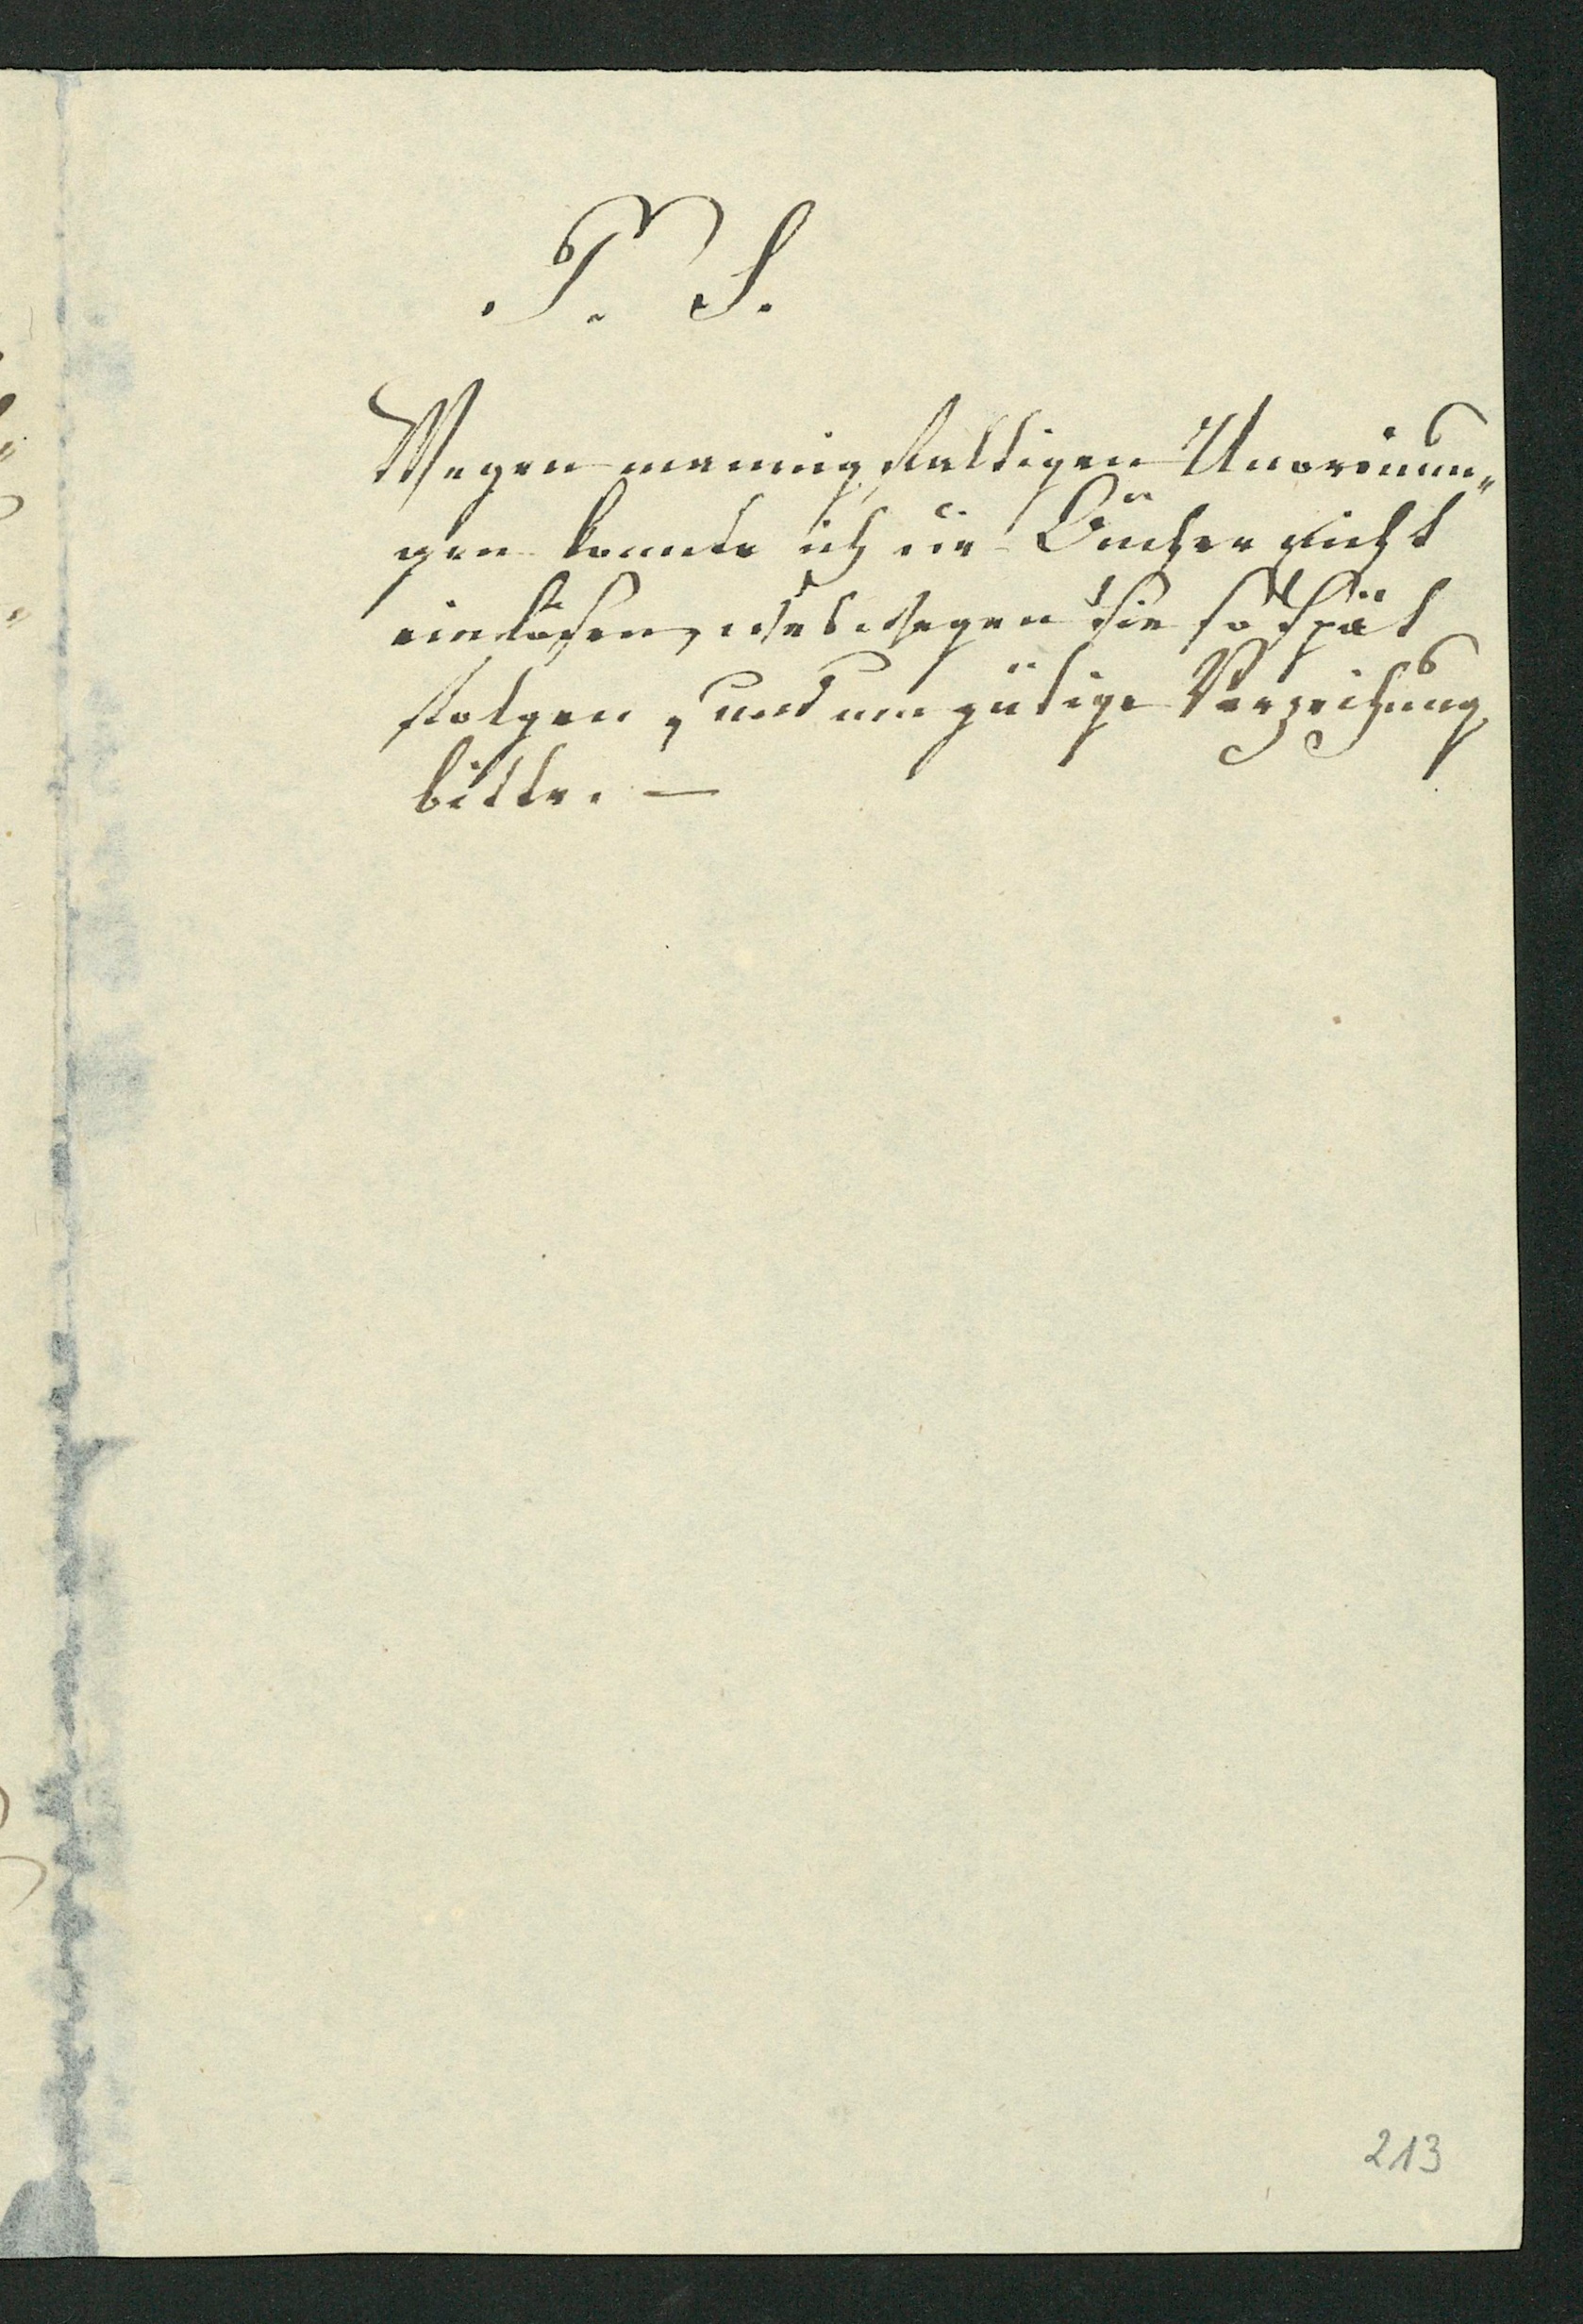 P. S.
Wegen mannigfaltigen Unordnun„
gen konnte ich die Bücher nicht
einlösen, weswegen sie so spät
folgen, und um gütige Verzeihung
bitte. —
213